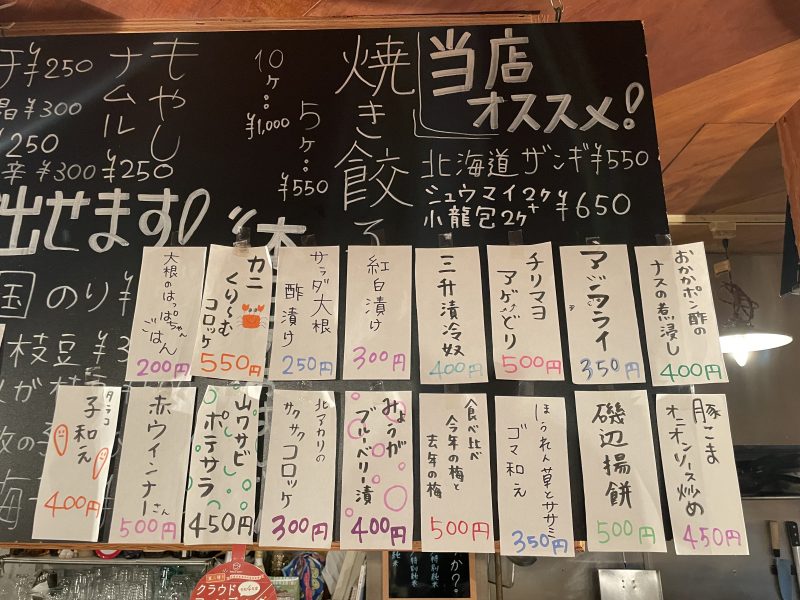 当店
オススメ!
北海道ザンギ¥550
シュウマイ2ケ+
小龍包2ケ
¥650
焼き餃子
5ケ:
¥550
10ケ:
¥1,000
もやし
ナムル
¥250
¥250
¥300
¥250
辛 ¥300
出せます!
国のり¥
枝豆 ¥3
おかかポン酢の
ナスの煮浸し
400円
アジフライ
350円
チリマヨ
アゲどり
500円
三升漬冷奴
400円
紅白漬け
300円
サラダ大根
酢漬け
250円
カニ
くり〜む
コロッケ
550円
大根のはっぱちゃん
ごはん
200円
豚こま
オニオンソース炒め
450円
磯辺揚餅
500円
ほうれん草とササミ
ゴマ和え
350円
食べ比べ
今年の梅と
去年の梅
500円
みょうが
ブルーベリー漬
400円
北アカリの
サクサクコロッケ
300円
山ワサビ
ポテサラ
450円
赤ウインナーさん
500円
タラコ
子和え
400円
か?
特別純米
クラウド